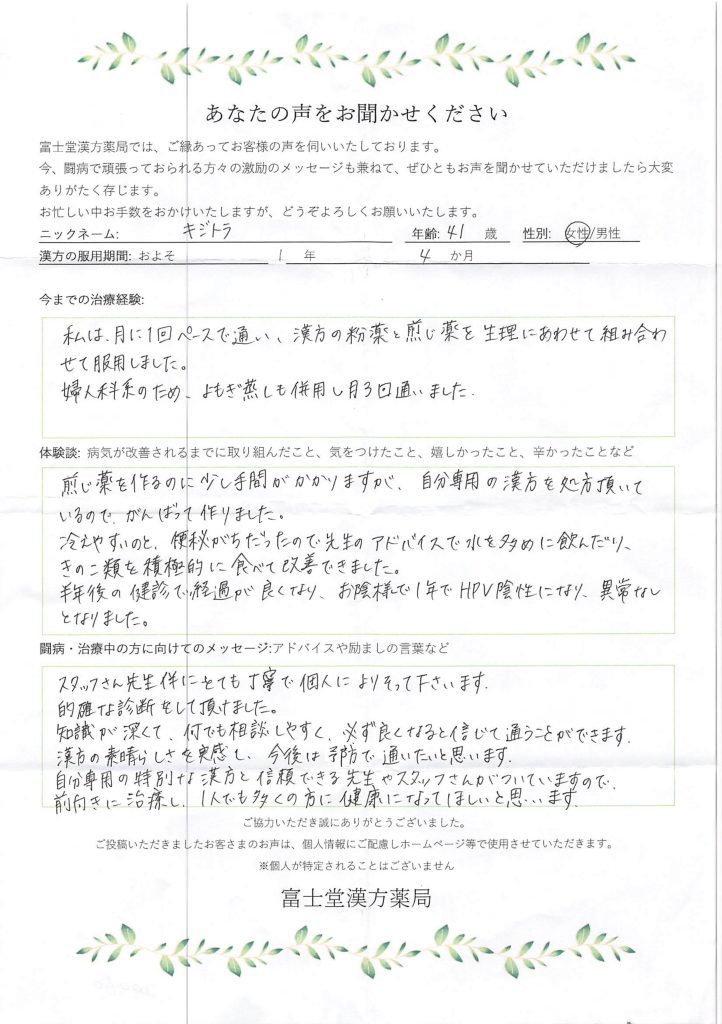 あなたの声をお聞かせください
富士堂漢方薬局では、ご縁あってお客様の声を伺いいたしております。
今、闘病で頑張っておられる方々の激励のメッセージも兼ねて、ぜひともお声を聞かせていただけましたら大変
ありがたく存じます。
お忙しい中お手数をおかけいたしますが、どうぞよろしくお願いいたします。
ニックネーム: キジトラ 年齢: 41 歳 性別: 女性/男性
漢方の服用期間: およそ 1 年 4 か月
今までの治療経験:
私は、月に1回ペースで通い、漢方の粉薬と煎じ薬を生理にあわせて組み合わ
せて服用しました。
婦人科系のため、よもぎ蒸しも併用し月3回通いました.
体験談: 病気が改善されるまでに取り組んだこと、気をつけたこと、嬉しかったこと、辛かったことなど
煎じ薬を作るのに少し手間がかかりますが、自分専用の漢方を処方頂いて
いるので、がんばって作りました。
冷えやすいのと、便秘がちだったので先生のアドバイスで水を多めに飲んだり、
きのこ類を積極的に食べて改善できました。
半年後の健診で経過が良くなり、お陰様で1年でHPV陰性になり、異常なし
となりました。
闘病・治療中の方に向けてのメッセージ:アドバイスや励ましの言葉など
スタッフさん先生伴にとても丁寧で個人によりそって下さいます.
的確な診断をして頂けました。
知識が深くて、何でも相談しやすく、必ず良くなると信じて通うことができます.
漢方の素晴らしさを実感し、今後は予防で通いたいと思います.
自分専用の特別な漢方と信頼できる先生やスタッフさんがついていますので、
前向きに治療し、1人でも多くの方に健康になってほしいと思います.
ご協力いただき誠にありがとうございました。
ご投稿いただきましたお客さまのお声は、個人情報にご配慮しホームページ等で使用させていただきます。
※個人が特定されることはございません
富士堂漢方薬局